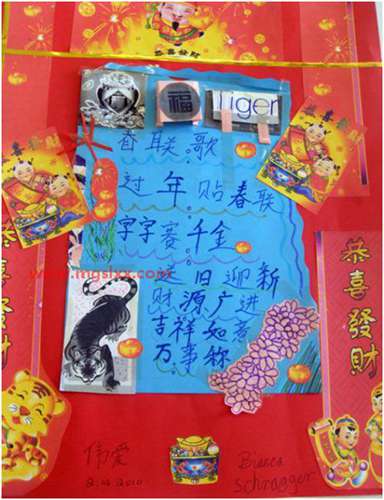 福
Tiger
春联歌
过年贴春联
字字赛千金
www.mgslxx.com
送旧迎新
财源广进
吉祥如意
万事称
恭喜發財
發財
伟爱
Bianca
Schragger